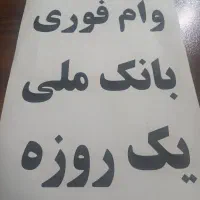 وام فوری
بانک ملی
یک روزه